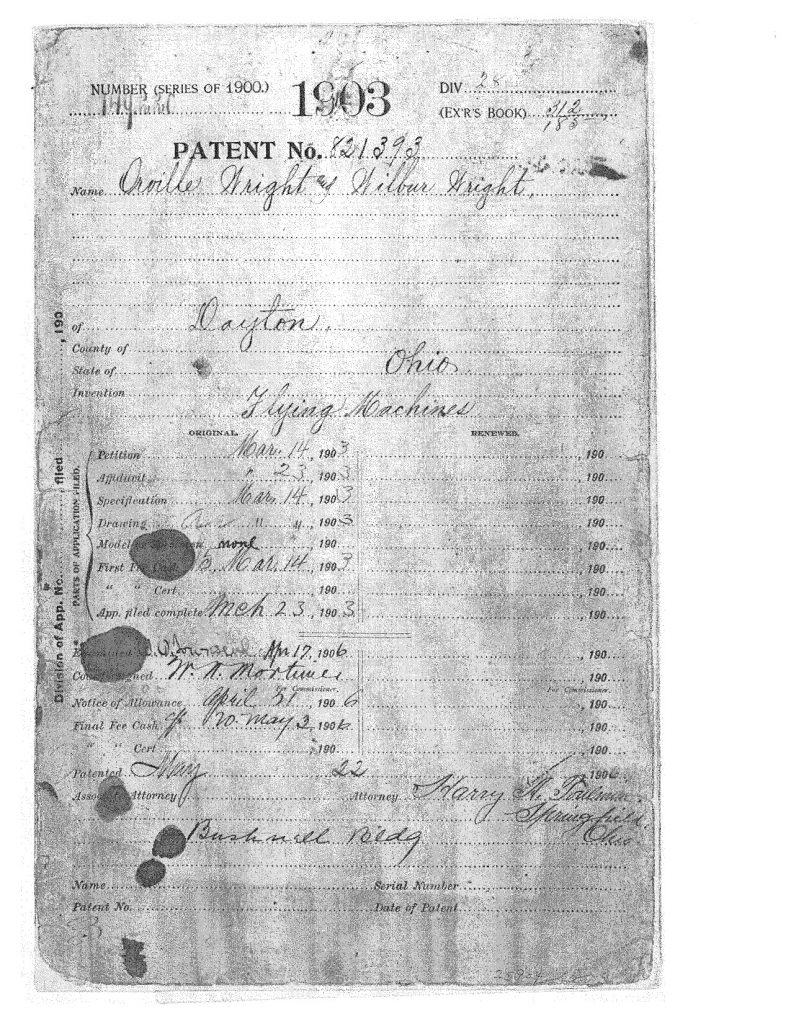 NUMBER (SERIES OF 1900.)
1903
DIV. 28
(EX'R'S BOOK) 312
183
PATENT No. 821393
Name Orville Wright and Wilbur Wright,
of Dayton,
County of
State of Ohio
Invention Flying Machines
ORIGINAL. RENEWED.
Petition Mar. 14, 1903 , 190
Affidavit " 23, 1903 , 190
Specification Mar. 14, 1903 , 190
Drawing " ", 1903 , 190
Model none , 190 , 190
First Fee Cash Mar. 14, 1903 , 190
" " Cert. , 190 , 190
App. filed complete Mch 23, 1903 , 190
Apr. 17, 1906 , 190
W. N. Mortimer , 190
For Commissioner. For Commissioner.
Notice of Allowance April 21, 1906 , 190
Final Fee Cash 20 May 3, 1906 , 190
" " Cert , 190 , 190
Patented May 22, 1906
Associate Attorney Attorney Harry A. Toulmin
Springfield,
Bushnell Bldg Ohio
Name Serial Number
Patent No. Date of Patent
Division of App. No. , filed , 190
PARTS OF APPLICATION FILED.